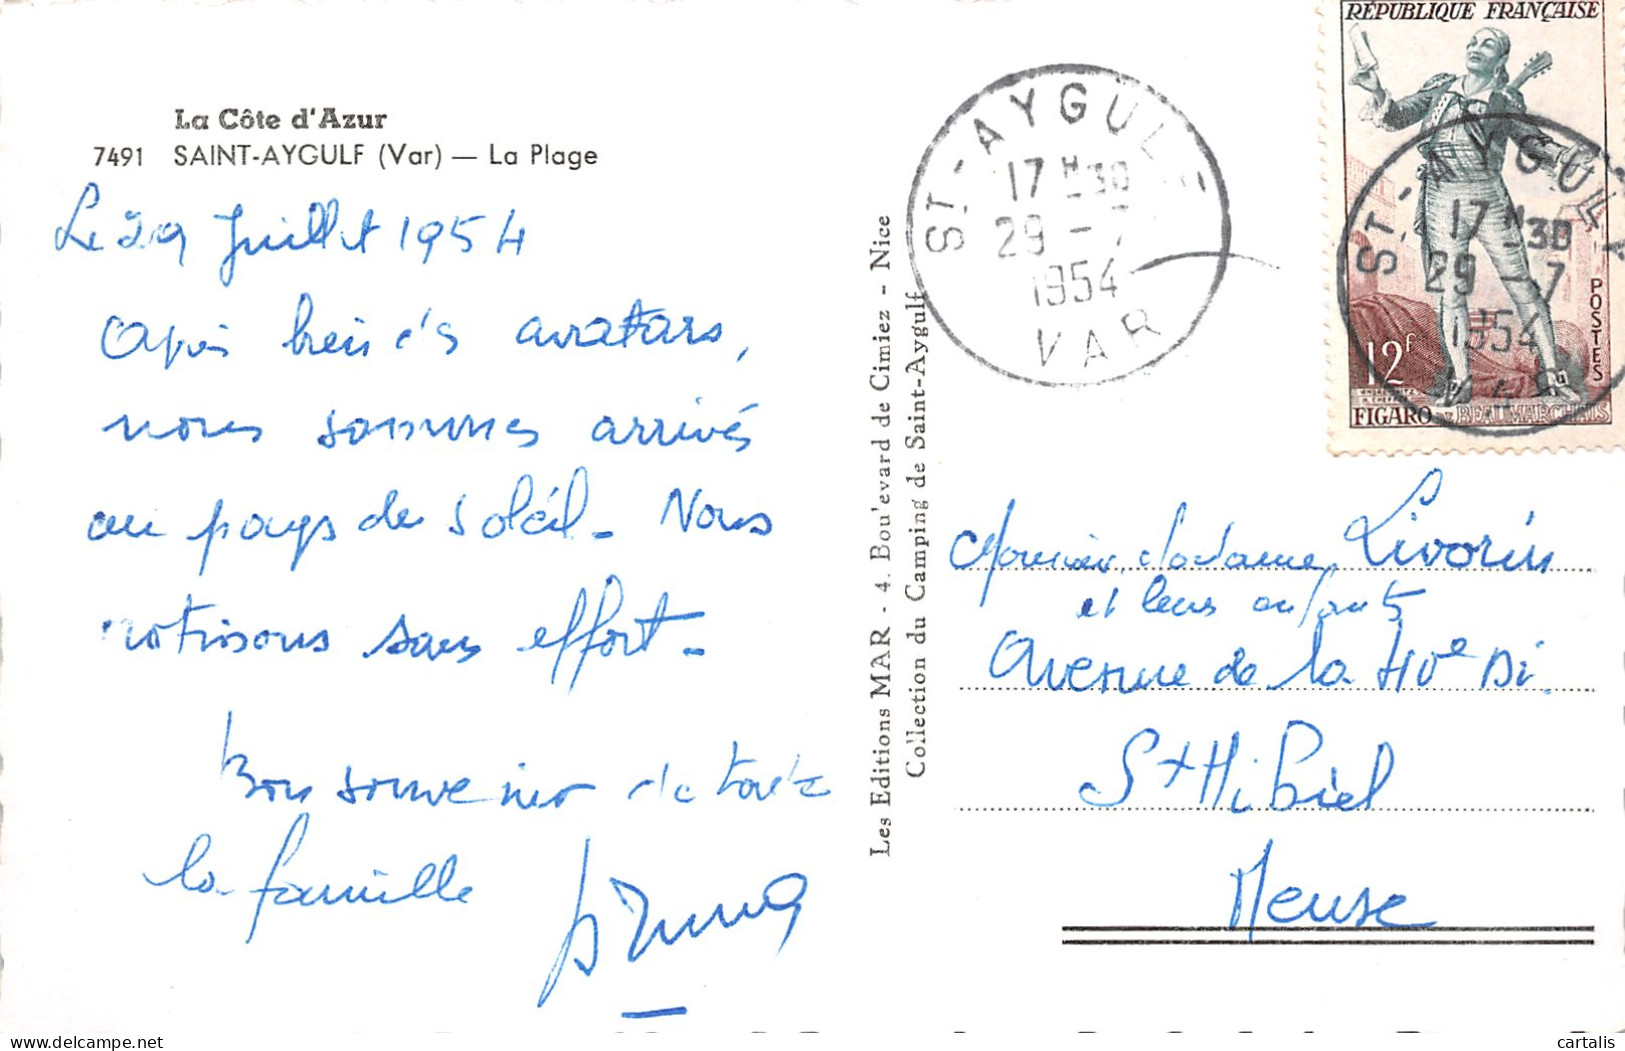 La Côte d'Azur
7491 SAINT-AYGULF (Var) — La Plage
Le 29 Juillet 1954
Après avatars,
nous sommes arrivés
au pays du soleil. Nous
rotissons sans effort.
Bon souvenir de toute
la famille
Les Editions MAR - 4. Bou'evard de Cimiez - Nice
Collection du Camping de Saint-Aygulf
ST-AYGULF
17H30
29-7
1954
VAR
RÉPUBLIQUE FRANÇAISE
POSTES
12F
FIGARO DE BEAUMARCHAIS
ST-AYGULF
17H30
29-7
1954
VAR
Monsieur, Madame Livorin
et leurs enfants
Avenue de la 40e Di.
St Mihiel
Meuse
cartalis